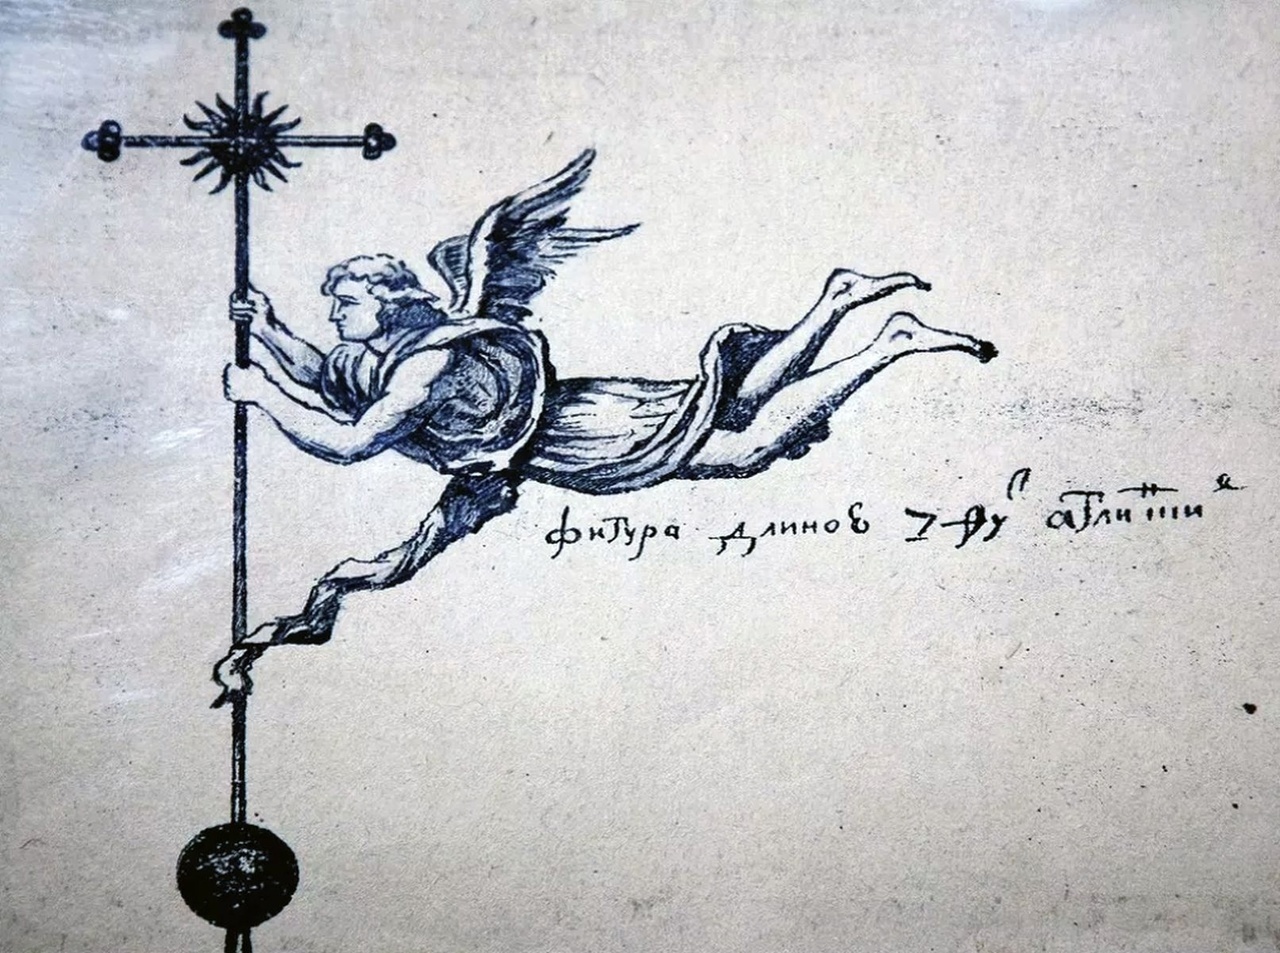 фигура длиною 7 фут аглинских